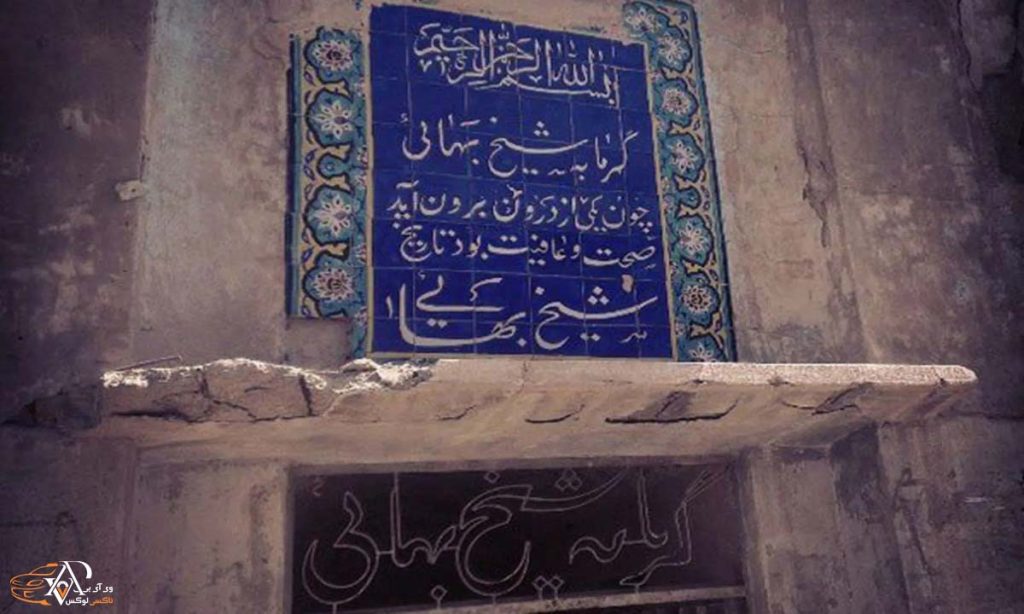 بسم الله الرحمن الرحیم
گرمابه شیخ بهائی
چون یکی از درون برون آید
صحت و عافیت بود تاریخ
شیخ بهایی
گرمابه شیخ بهائی
وی آی پی
تاکسی لوکس